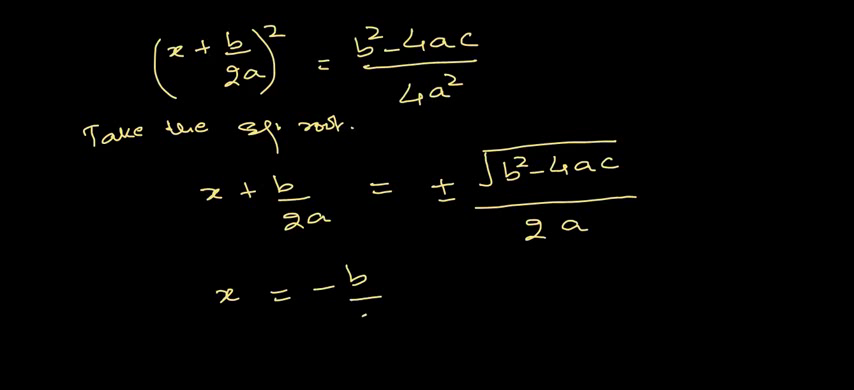 (x + b/2a)² = b² - 4ac / 4a²
Take the sq. root.
x + b/2a = ± √b² - 4ac / 2a
x = - b/